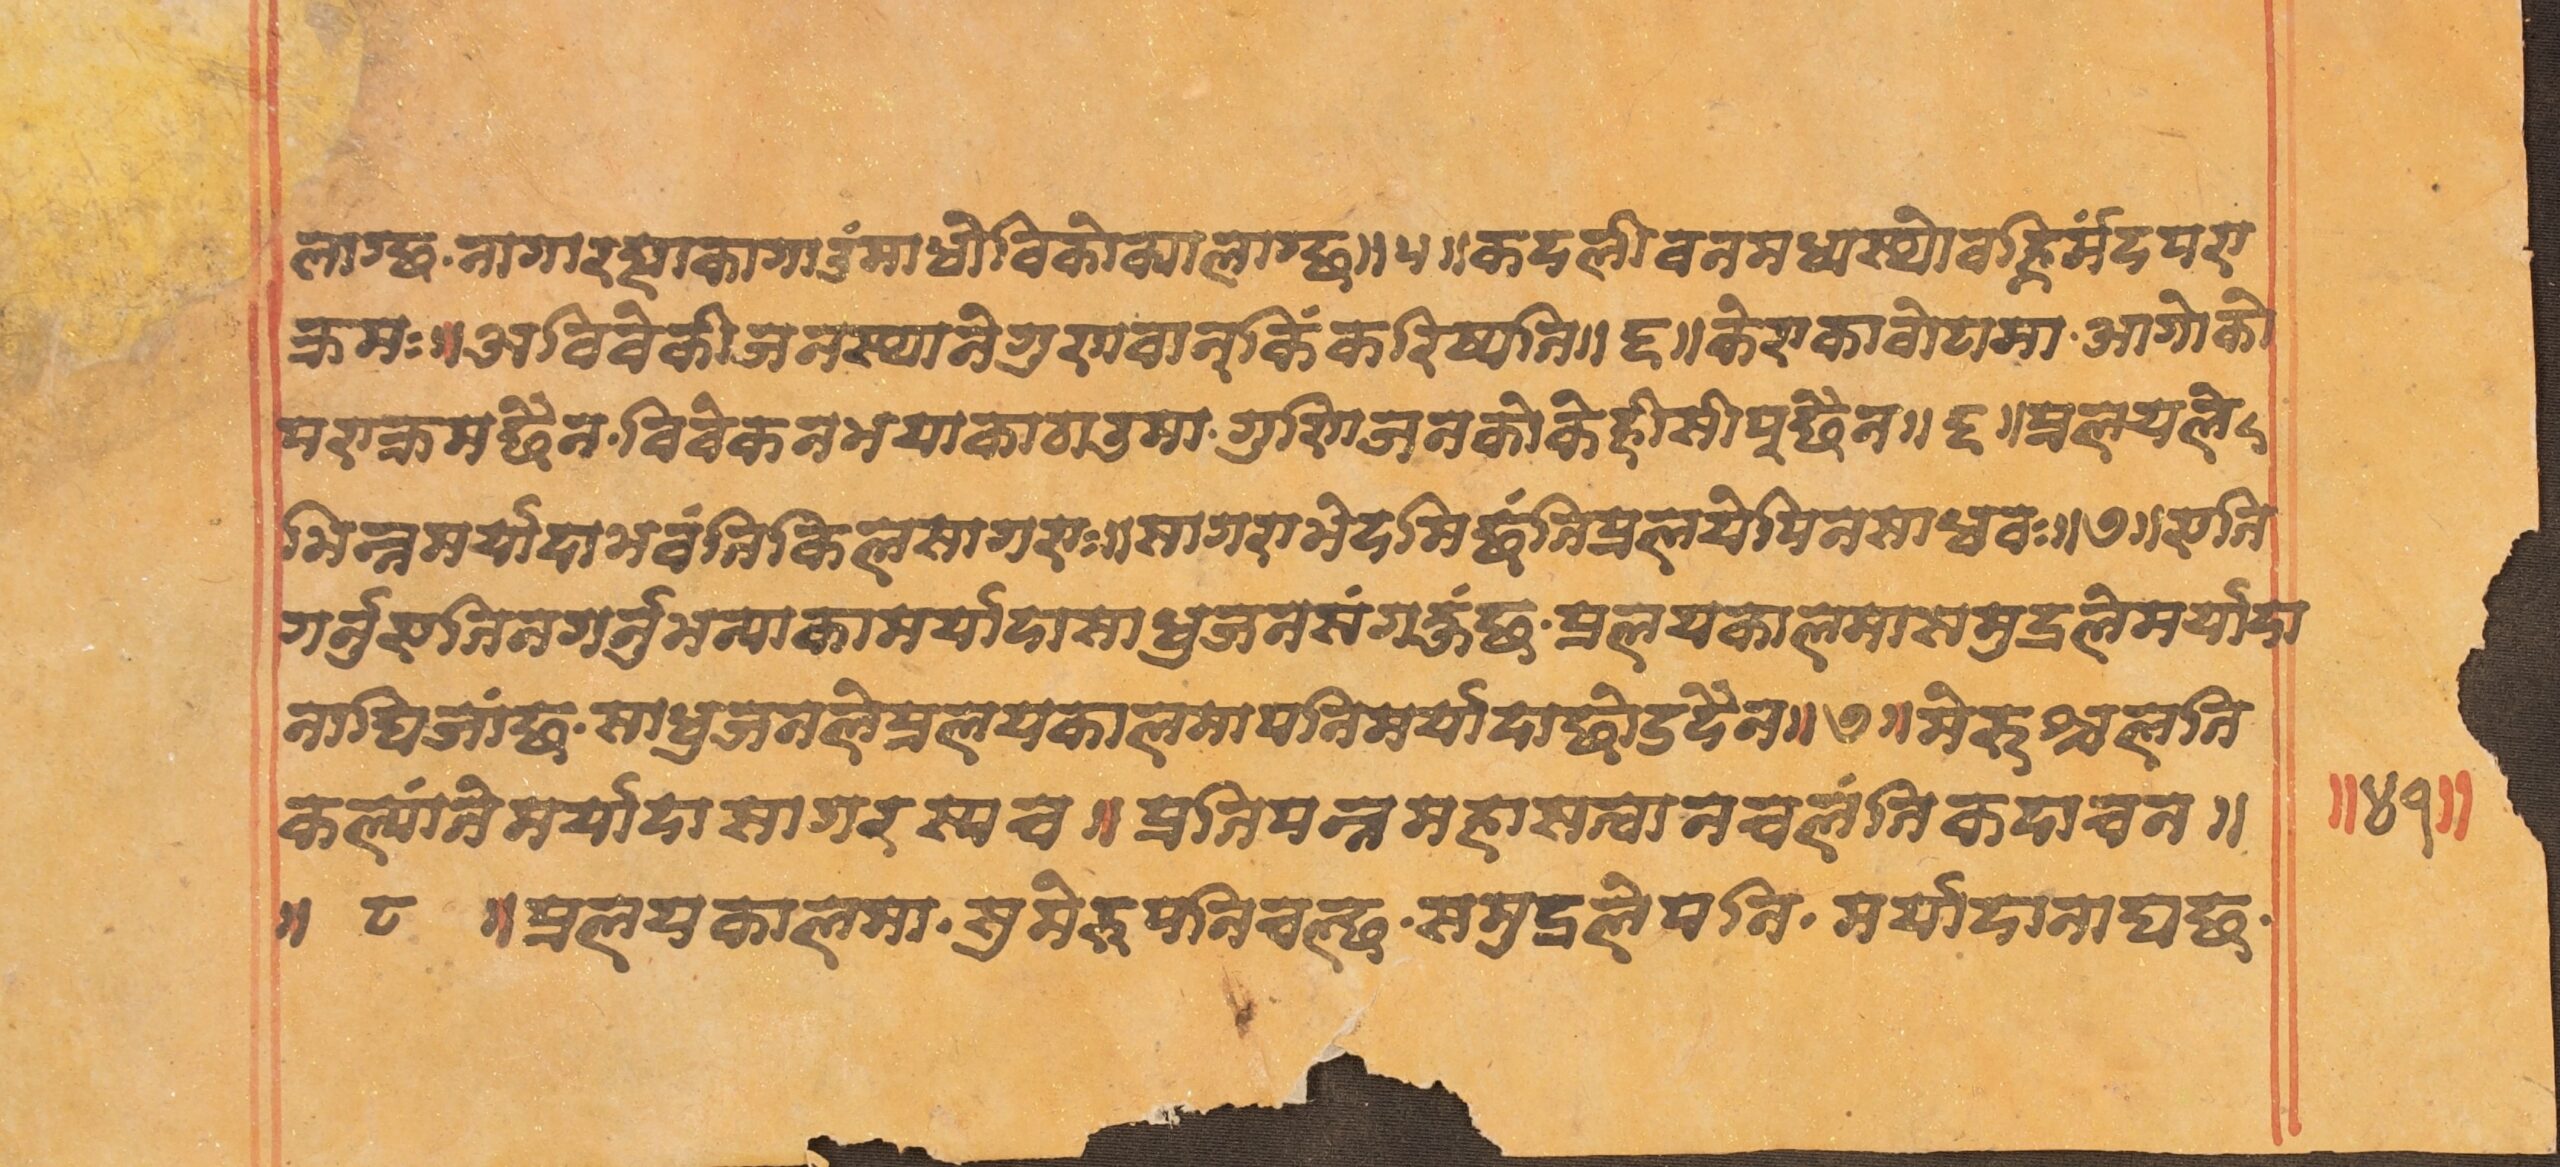 लाग्छ·नागारह्याकागाउंमाधोविकोक्यालाग्छ॥५॥कदलीवनमध्यस्थोवह्निर्मंदपरा
क्रमः॥अविवेकीजनस्थानेगुणवान्किंकरिष्यति॥६॥केराकावोटमा·आगोको
पराक्रमछैन·विवेकनभयाकाठाउमा·गुणिजनकोकेहीसीपूछैन॥६॥प्रलयले
भिन्नमर्यादाभवंतिकिलसागराः॥सागराभेदमिछंतिप्रलयेपिनसाधवः॥७॥एति
गर्नुएतिनगर्नुभन्याकामर्यादासाधुजनसंगक्तंछ·प्रलयकालमासमुद्रलेमर्यादा
नाघिजांछ·साधुजनलेप्रलयकालमापनिमर्यादाछोडदैन॥७॥मेरुश्चलति
कल्पांतेमर्यादासागरस्यच॥प्रतिपन्नमहासत्वानचलंतिकदाचन॥
॥८॥प्रलयकालमा·सुमेरुपनिचल्छ·समुद्रलेपनि·मर्यादानाघछ·
॥४१॥